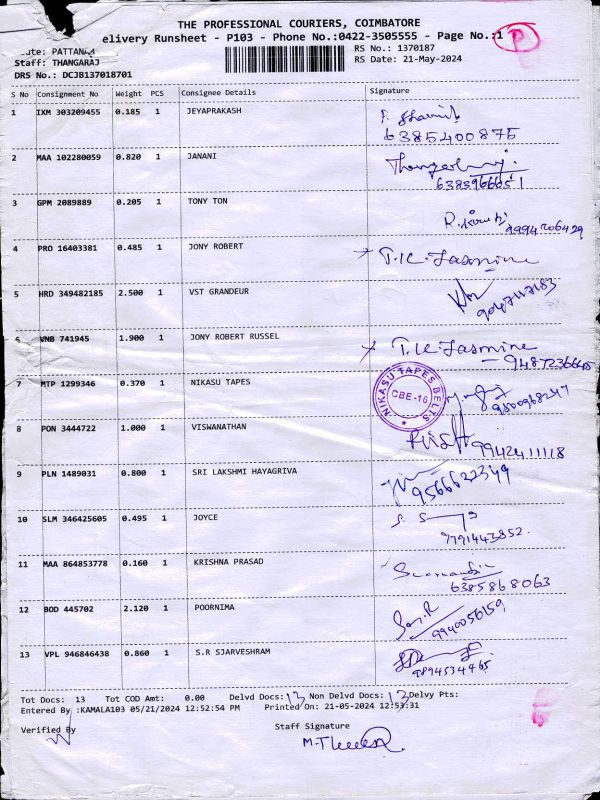 THE PROFESSIONAL COURIERS, COIMBATORE
elivery Runsheet - P103 - Phone No.:0422-3505555 - Page No.:1 P
ute: PATTANA RS No.: 1370187
Staff: THANGARAJ RS Date: 21-May-2024
DRS No.: DCJB137018701
S No Consignment No Weight PCS Consignee Details Signature
1 IXM 303209455 0.185 1 JEYAPRAKASH
6385400875
2 MAA 102280059 0.820 1 JANANI
6383966651
3 GPM 2089889 0.205 1 TONY TON
9994206429
4 PRO 16403381 0.485 1 JONY ROBERT T.K. Jasmine
5 HRD 349482185 2.500 1 VST GRANDEUR
9047117183
6 VNB 741945 1.900 1 JONY ROBERT RUSSEL T.K Jasmine
NIKASU TAPES BELTS
CBE-16
7 MTP 1299346 0.370 1 NIKASU TAPES
8 PON 3444722 1.000 1 VISWANATHAN
9942411118
9 PLN 1489031 0.800 1 SRI LAKSHMI HAYAGRIVA
9566622349
10 SLM 346425605 0.495 1 JOYCE
9791443852.
11 MAA 864853778 0.160 1 KRISHNA PRASAD
6385868063
12 BOD 445702 2.120 1 POORNIMA
9940056159
13 VPL 946846438 0.860 1 S.R SJARVESHRAM
9894534465
Tot Docs: 13 Tot COD Amt: 0.00 Delvd Docs: 13 Non Delvd Docs: 13 Delvy Pts:
Entered By :KAMALA103 05/21/2024 12:52:54 PM Printed On: 21-05-2024 12:53:31
Verified By Staff Signature